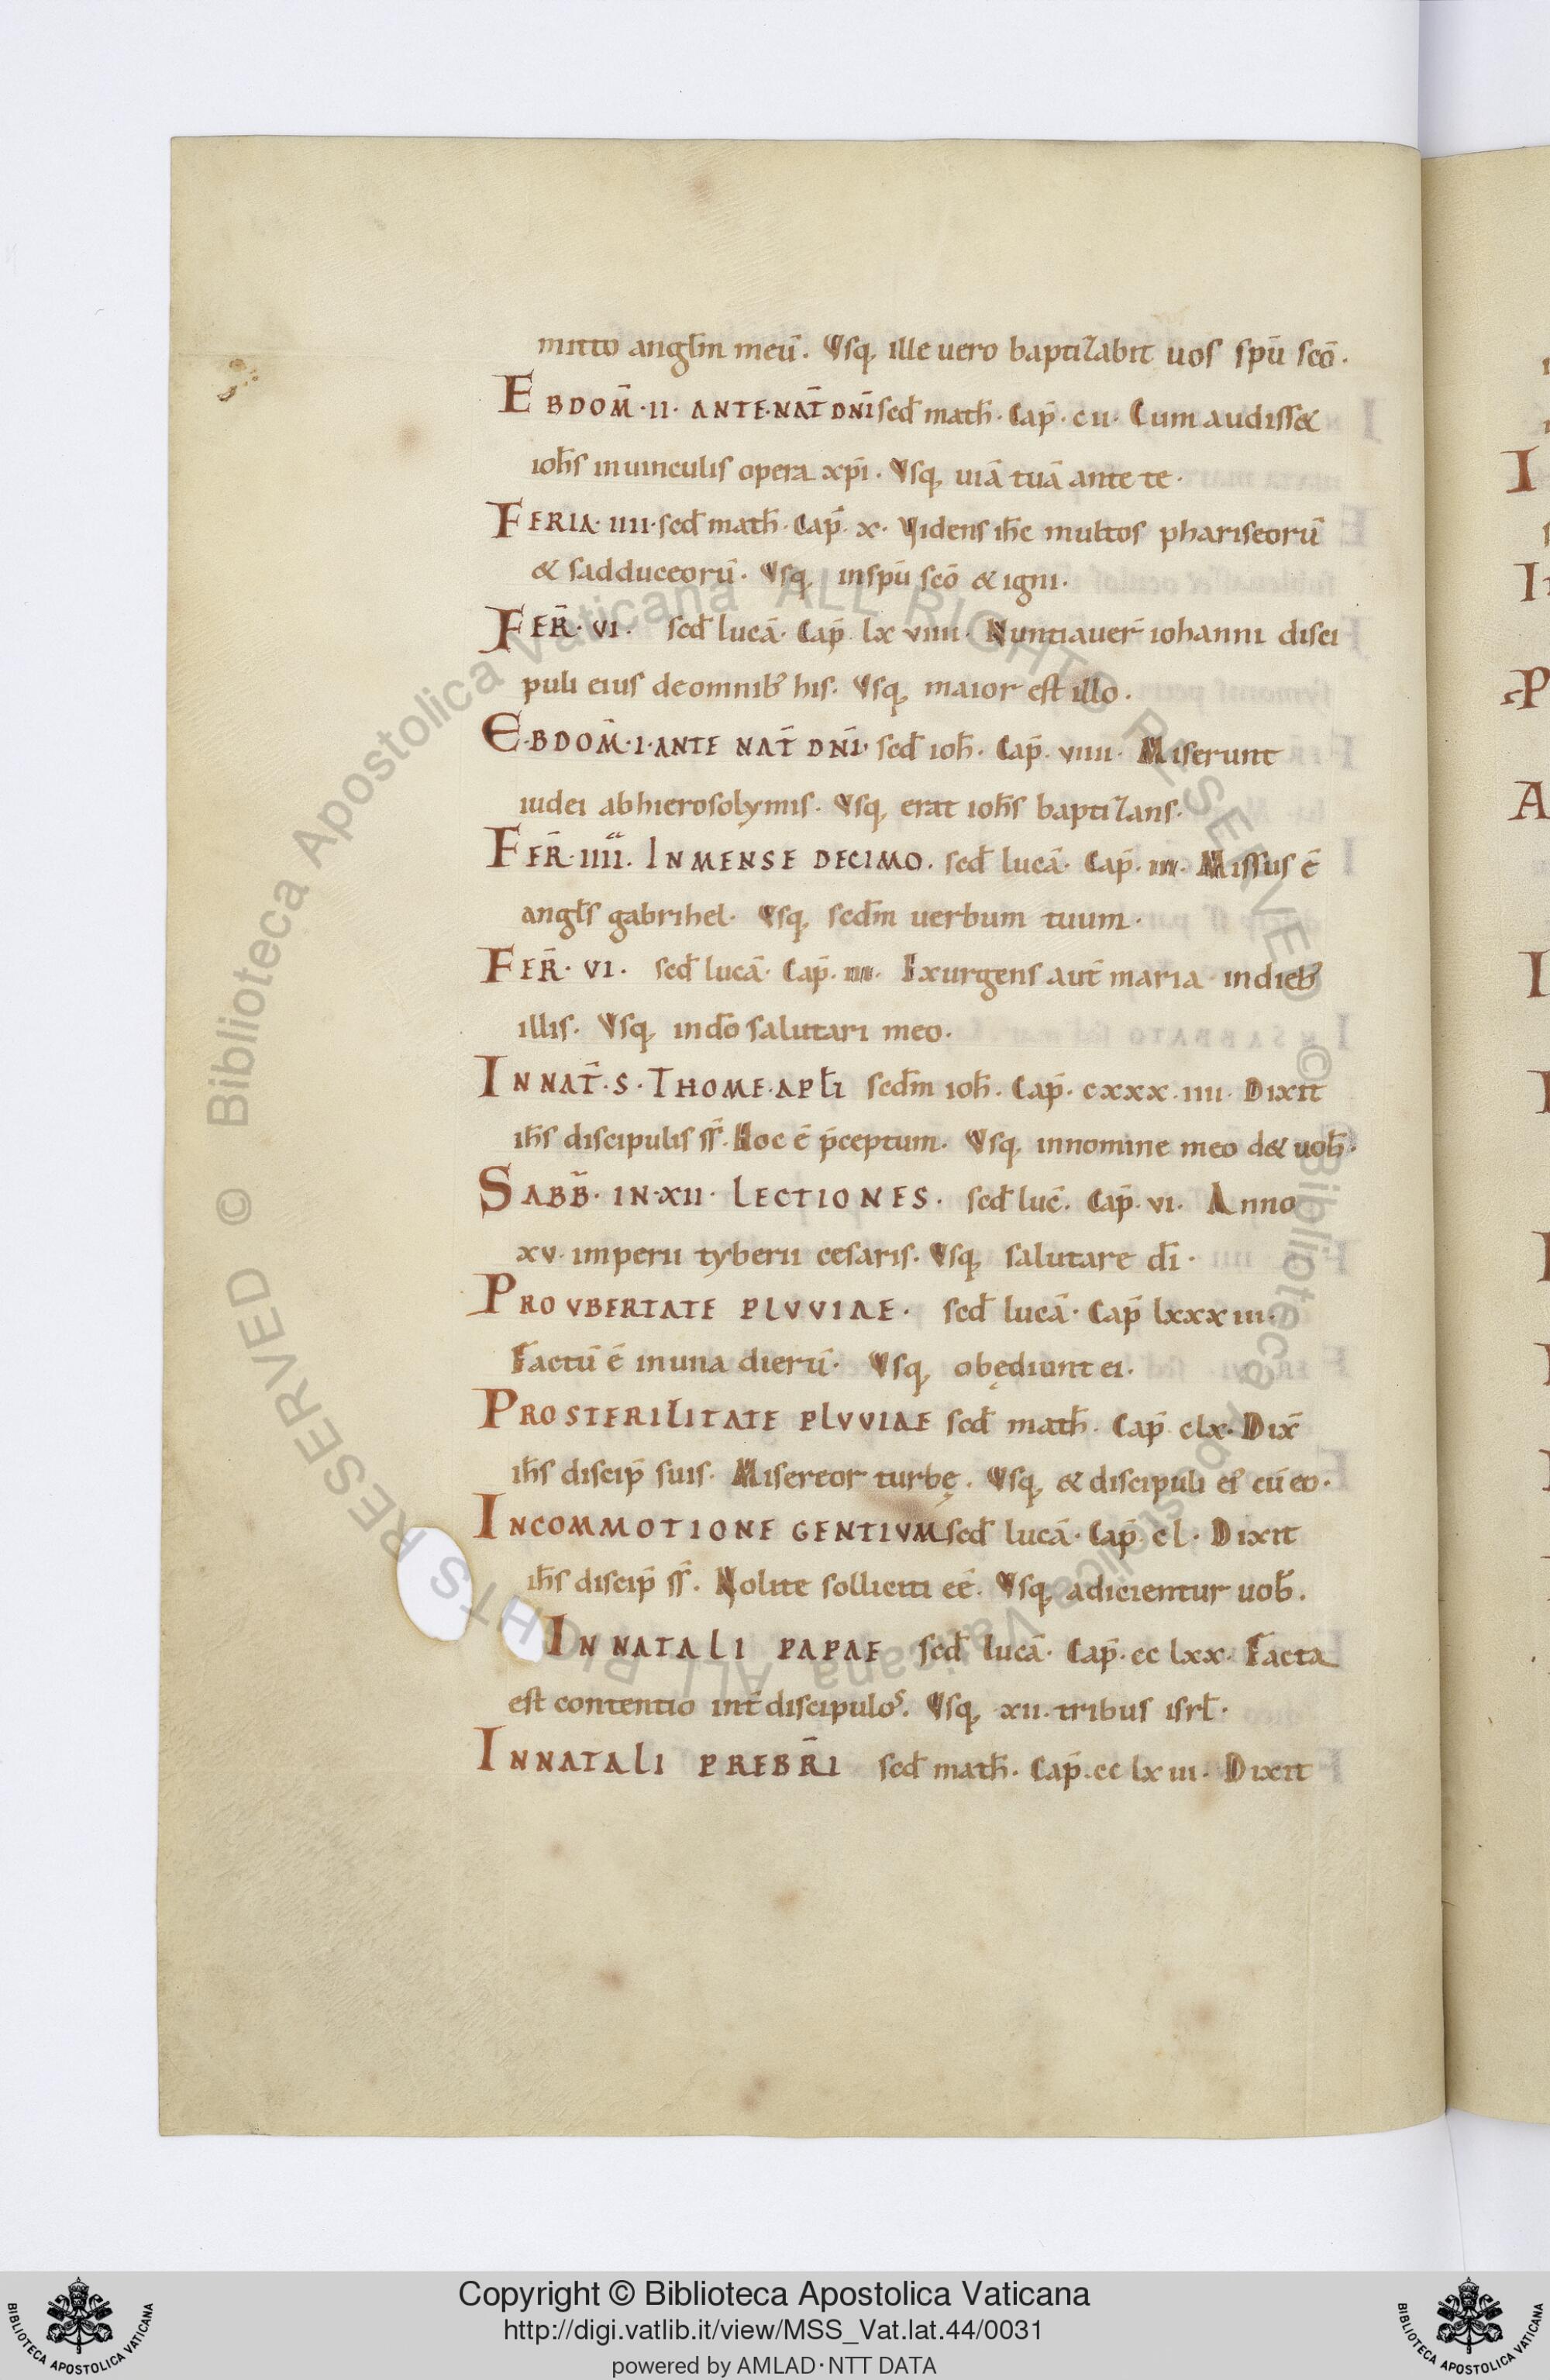 mitto angłm meū. Vsq, ille uero baptizabit uos spū scō.
EBDOM̄·II· ANTE·NAT̄ DNĪ scđ math̄. Cap̄. cii. Cum audiss&
ioħs inuinculis opera xp̄i. Vsq, uiā tuā ante te.
FERIA·IIII·scđ math̄. Cap̄. x. Videns iħc multos phariseorū
& sadduceorū. Vsq, inspū scō & igni.
FER̄·VI. scđ lucā. Cap̄ lxviiii. Nuntiauer̄ iohanni disci
puli eius deomnib; his. Vsq, maior est illo.
EBDOM̄·I·ANTE NAT̄ DNĪ· scđ ioħ. Cap̄. viiii. Miserunt
iudei abhierosolymis. Vsq, erat ioħs baptizans.
FER̄·IIII. INMENSE DECIMO. scđ lucā. Cap̄. iii. Missus ē
angłs gabrihel. Vsq, scđm uerbum tuum.
FER̄·VI. scđ lucā. Cap̄. iiii. Exurgens aut̄ maria indieb;
illis. Vsq, indō salutari meo.
INNAT̄·S·THOME·APŁI scđm ioħ. Cap̄. cxxx.iiii. Dixit
iħs discipulis ss̄. Hoc ē p̄ceptum. Vsq, innomine meo d& uob̄.
SABB̄·IN·XII·LECTIONES. scđ luc̄. Cap̄. vi. Anno
xv. imperii tyberii cesaris. Vsq, salutare dī.
PRO VBERTATE PLVVIAE. scđ lucā. Cap̄ lxxxiii.
Factū ē inuna dierū. Vsq, obędiunt ei.
PROSTERILITATE PLVVIAE scđ math̄. Cap̄ clx. Dix̄
iħs discip̄ suis. Misereor turbę. Vsq, & discipuli ei᾽ cū eo.
INCOMMOTIONE GENTIVM scđ lucā. Cap̄. cl. Dixit
iħs discip̄ ss̄. Nolite solliciti eē. Vsq, adicientur uob̄.
INNATALI PAPAE scđ lucā. Cap̄. cclxx. Facta
est contentio int̄ discipulos. Vsq, xii. tribus isrł.
INNATALI PREBR̄I scđ math̄. Cap̄.cclxiii. Dixit
Copyright © Biblioteca Apostolica Vaticana
http://digi.vatlib.it/view/MSS_Vat.lat.44/0031
powered by AMLAD·NTT DATA
BIBLIOTECA APOSTOLICA VATICANA
BIBLIOTECA APOSTOLICA VATICANA
© Biblioteca Apostolica Vaticana ALL RIGHTS RESERVED © Biblioteca Apostolica Vaticana ALL RIGHTS RESERVED